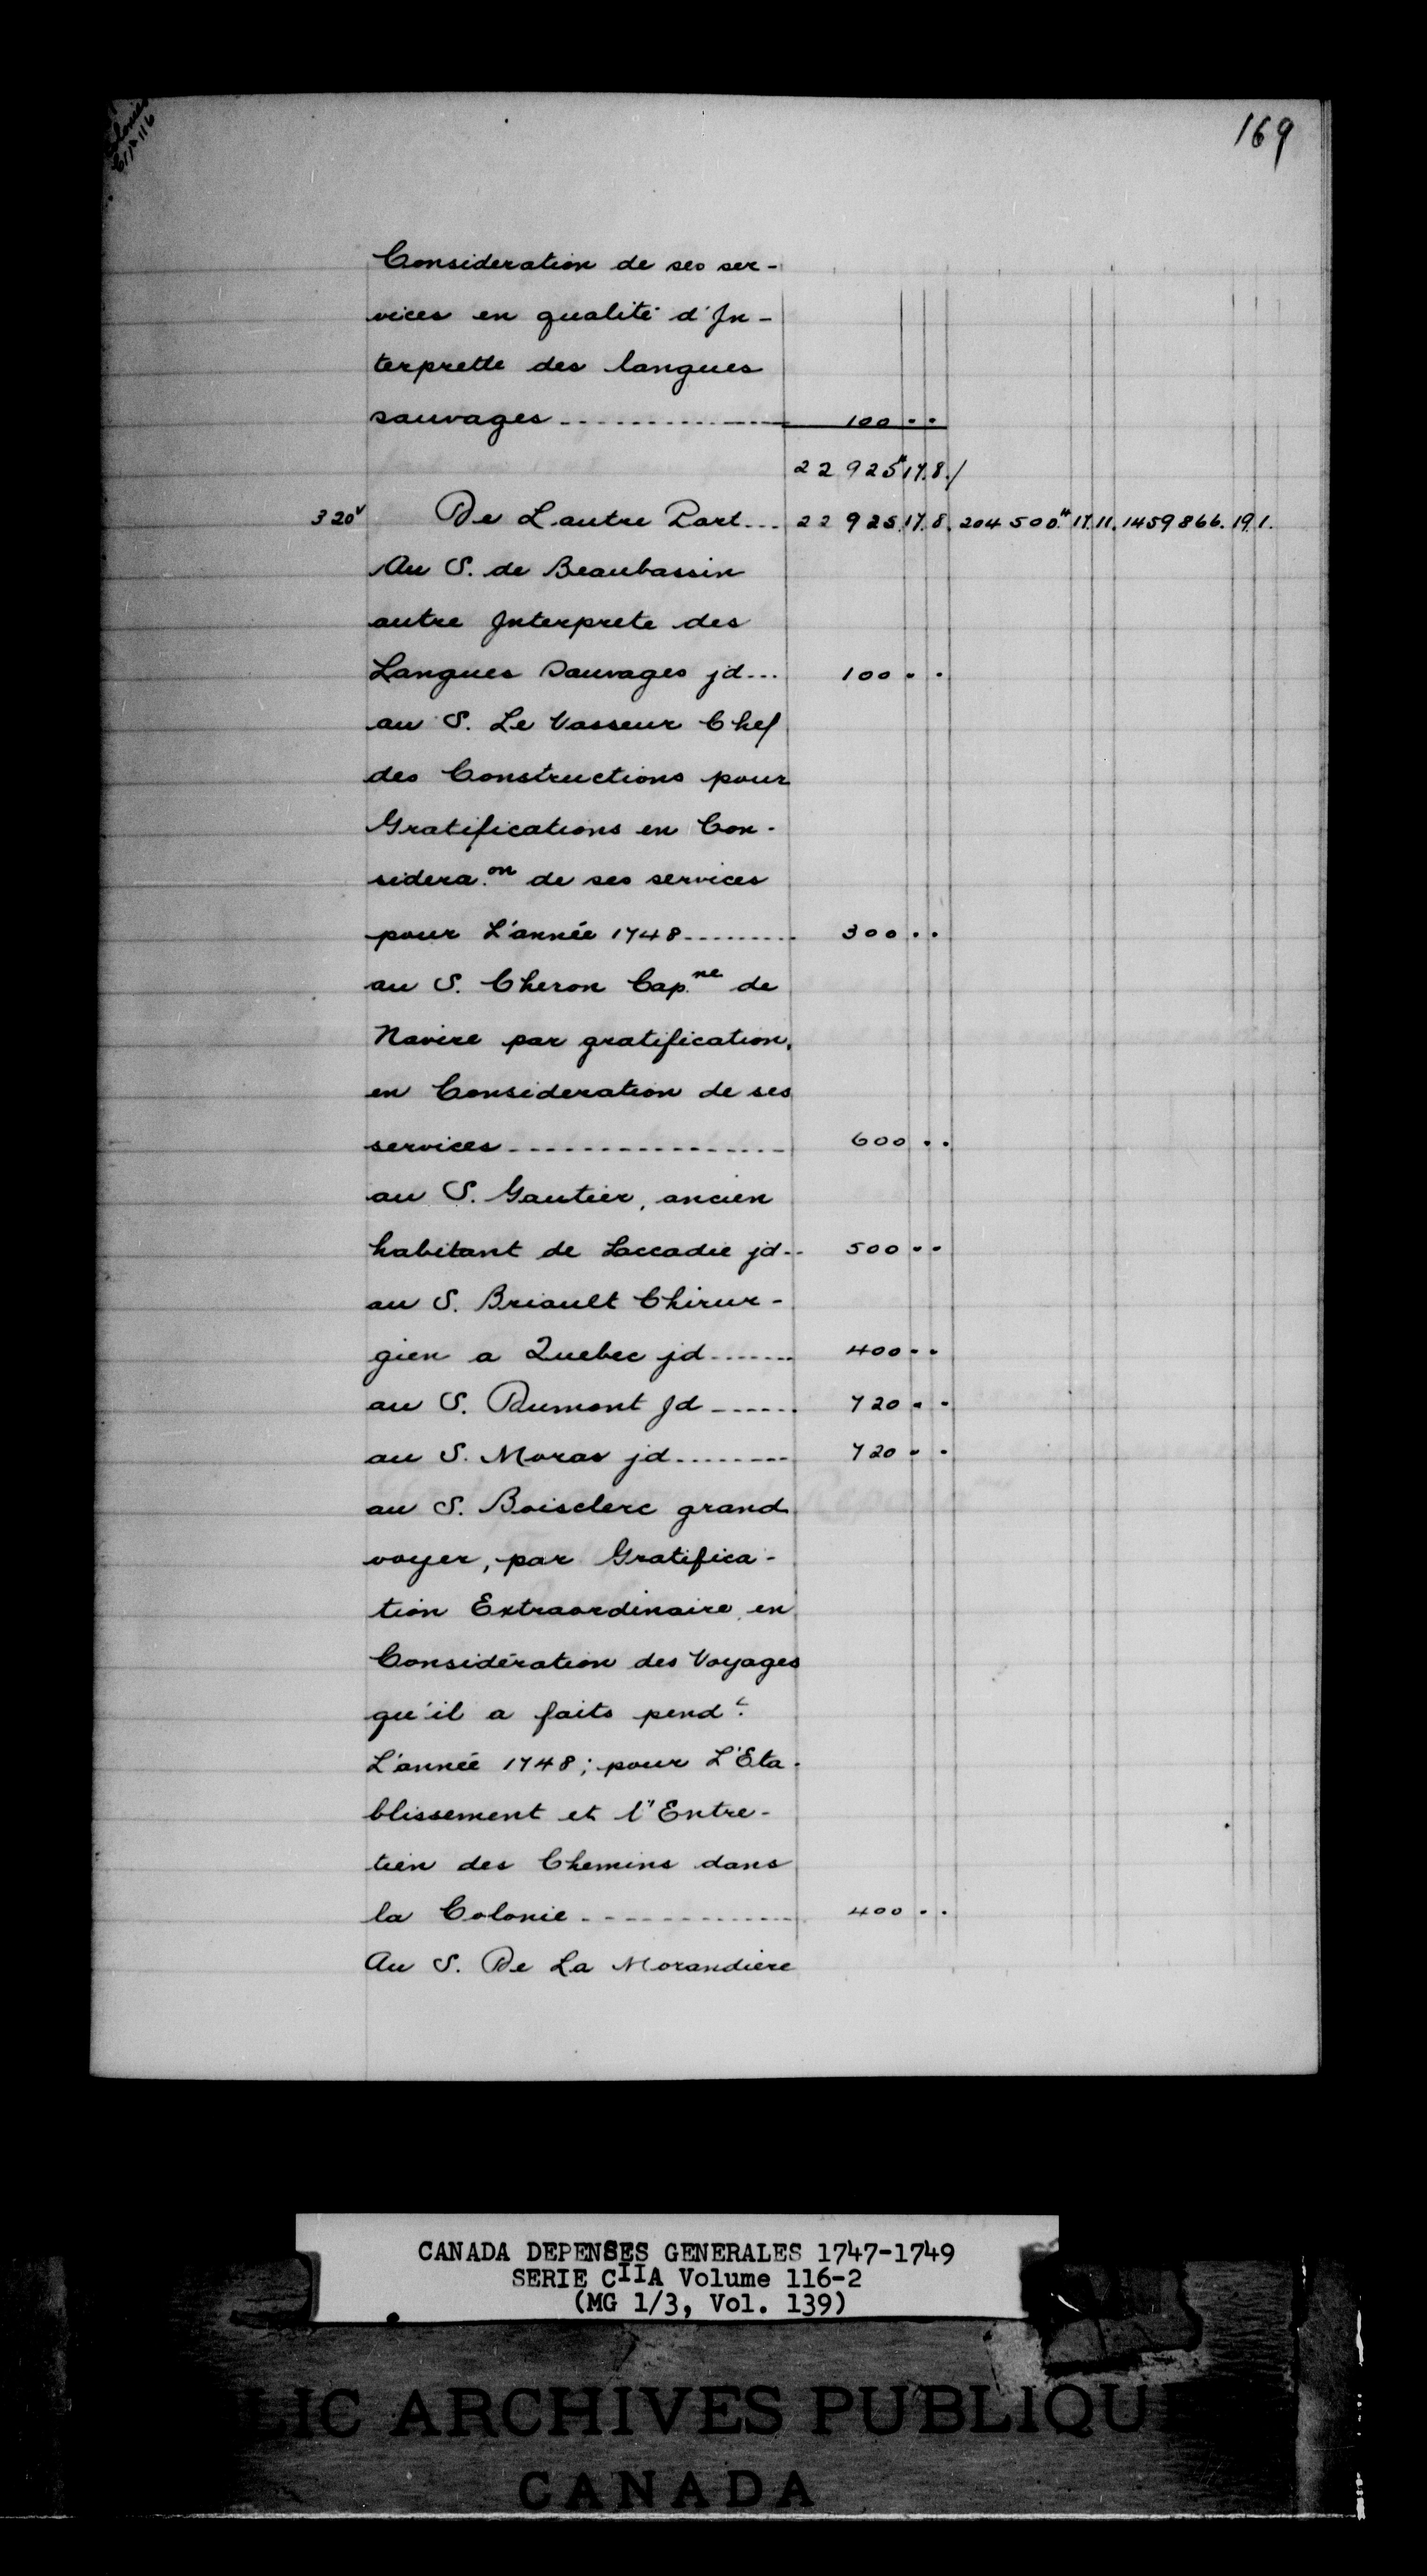 169
Consideration de ses ser-
vices en qualité d'In-
terprette des langues
sauvages ............... 100 . .
22 925# 17. 8./
320v De Lautre Part... 22 925. 17. 8. 204 500.# 17. 11. 1459 866. 19. 1.
Au S. de Beaubassin
autre Interprete des
Langues Sauvages jd... 100 . .
au S. Le Vasseur Chef
des Constructions pour
Gratifications en Con-
sidera.on de ses services
pour L'année 1748......... 300 . .
au S. Cheron Cap.ne de
Navire par gratification,
en Consideration de ses
services ................. 600 . .
au S. Gautier, ancien
habitant de Laccadie jd.. 500 . .
au S. Briault Chirur-
gien a Quebec jd....... 400 . .
au S. Dumont Jd...... 720 . .
au S. Moras jd........ 720 . .
au S. Boisclerc grand
voyer, par Gratifica-
tion Extraordinaire, en
Considération des Voyages
qu'il a faits pend.t
L'année 1748; pour L'Eta-
blissement et l'Entre-
tien des Chemins dans
la Colonie ............. 400 . .
Au S. De La Morandiere
CANADA DEPENSES GENERALES 1747-1749
SERIE CIIA Volume 116-2
(MG 1/3, Vol. 139)
LIC ARCHIVES PUBLIQU
CANADA